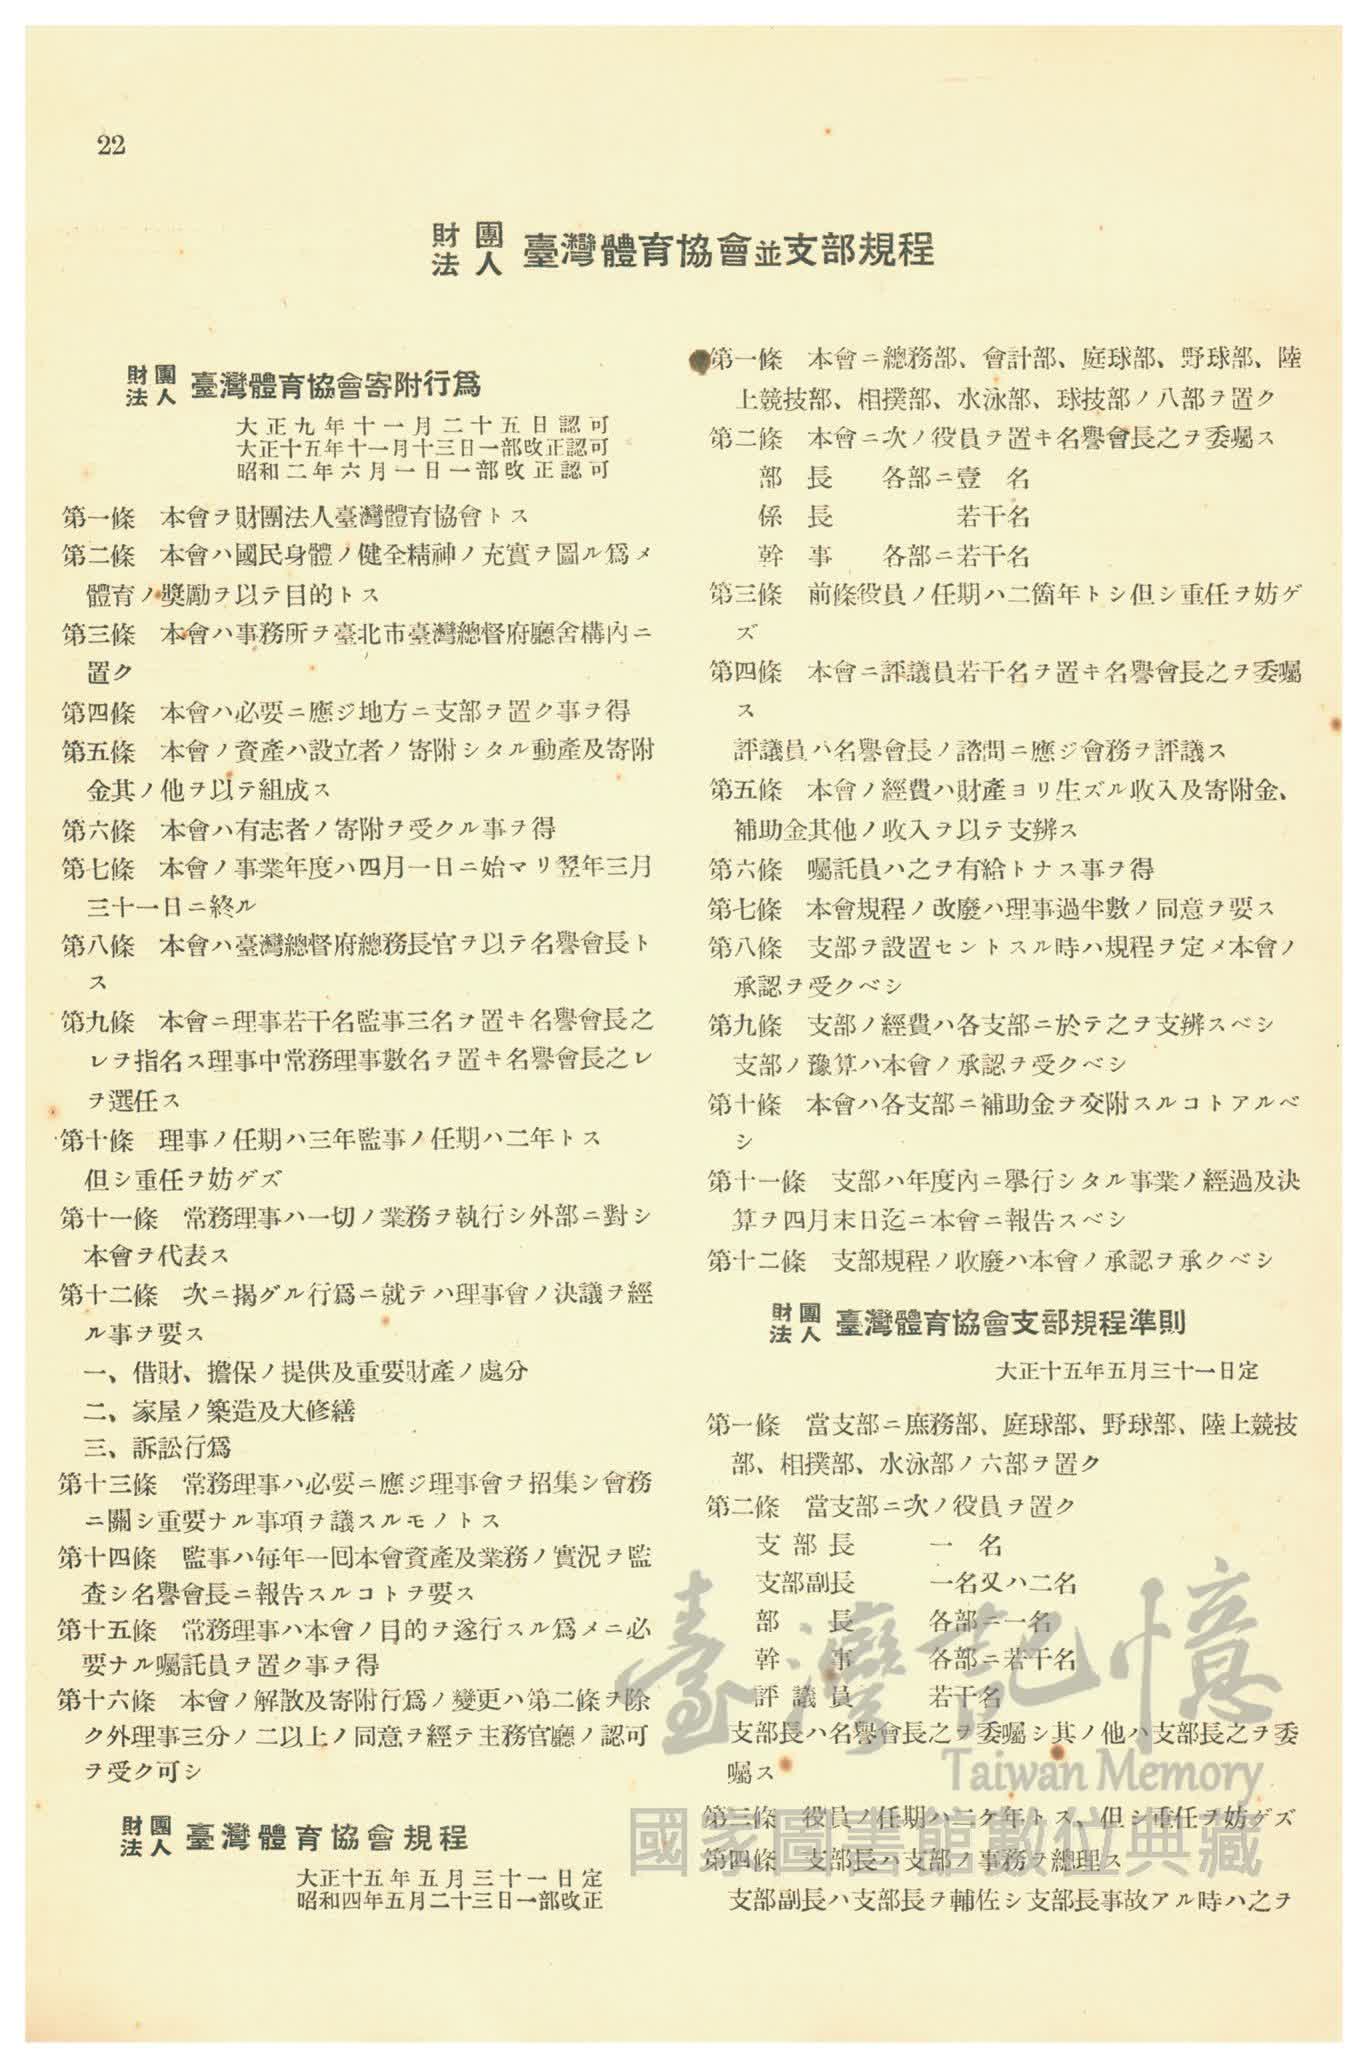 22
財團法人 臺灣體育協會並支部規程
財團法人 臺灣體育協會寄附行爲
大正九年十一月二十五日認可
大正十五年十一月十三日一部改正認可
昭和二年六月一日一部改正認可
第一條　本會ヲ財團法人臺灣體育協會トス
第二條　本會ハ國民身體ノ健全精神ノ充實ヲ圖ル爲メ
體育ノ奬勵ヲ以テ目的トス
第三條　本會ハ事務所ヲ臺北市臺灣總督府廳舍構內ニ
置ク
第四條　本會ハ必要ニ應ジ地方ニ支部ヲ置ク事ヲ得
第五條　本會ノ資產ハ設立者ノ寄附シタル動產及寄附
金其ノ他ヲ以テ組成ス
第六條　本會ハ有志者ノ寄附ヲ受クル事ヲ得
第七條　本會ノ事業年度ハ四月一日ニ始マリ翌年三月
三十一日ニ終ル
第八條　本會ハ臺灣總督府總務長官ヲ以テ名譽會長ト
ス
第九條　本會ニ理事若干名監事三名ヲ置キ名譽會長之
レヲ指名ス理事中常務理事數名ヲ置キ名譽會長之レ
ヲ選任ス
第十條　理事ノ任期ハ三年監事ノ任期ハ二年トス
但シ重任ヲ妨ゲズ
第十一條　常務理事ハ一切ノ業務ヲ執行シ外部ニ對シ
本會ヲ代表ス
第十二條　次ニ揭グル行爲ニ就テハ理事會ノ決議ヲ經
ル事ヲ要ス
一、借財、擔保ノ提供及重要財產ノ處分
二、家屋ノ築造及大修繕
三、訴訟行爲
第十三條　常務理事ハ必要ニ應ジ理事會ヲ招集シ會務
ニ關シ重要ナル事項ヲ議スルモノトス
第十四條　監事ハ每年一回本會資產及業務ノ實況ヲ監
查シ名譽會長ニ報告スルコトヲ要ス
第十五條　常務理事ハ本會ノ目的ヲ遂行スル爲メニ必
要ナル囑託員ヲ置ク事ヲ得
第十六條　本會ノ解散及寄附行爲ノ變更ハ第二條ヲ除
ク外理事三分ノ二以上ノ同意ヲ經テ主務官廳ノ認可
ヲ受ク可シ
財團法人 臺灣體育協會規程
大正十五年五月三十一日定
昭和四年五月二十三日一部改正
第一條　本會ニ總務部、會計部、庭球部、野球部、陸
上競技部、相撲部、水泳部、球技部ノ八部ヲ置ク
第二條　本會ニ次ノ役員ヲ置キ名譽會長之ヲ委囑ス
部長　各部ニ壹名
係長　若干名
幹事　各部ニ若干名
第三條　前條役員ノ任期ハ二箇年トシ但シ重任ヲ妨ゲ
ズ
第四條　本會ニ評議員若干名ヲ置キ名譽會長之ヲ委囑
ス
評議員ハ名譽會長ノ諮問ニ應ジ會務ヲ評議ス
第五條　本會ノ經費ハ財產ヨリ生ズル收入及寄附金、
補助金其他ノ收入ヲ以テ支辨ス
第六條　囑託員ハ之ヲ有給トナス事ヲ得
第七條　本會規程ノ改廢ハ理事過半數ノ同意ヲ要ス
第八條　支部ヲ設置セントスル時ハ規程ヲ定メ本會ノ
承認ヲ受クベシ
第九條　支部ノ經費ハ各支部ニ於テ之ヲ支辨スベシ
支部ノ豫算ハ本會ノ承認ヲ受クベシ
第十條　本會ハ各支部ニ補助金ヲ交附スルコトアルベ
シ
第十一條　支部ハ年度內ニ擧行シタル事業ノ經過及決
算ヲ四月末日迄ニ本會ニ報告スベシ
第十二條　支部規程ノ收廢ハ本會ノ承認ヲ承クベシ
財團法人 臺灣體育協會支部規程準則
大正十五年五月三十一日定
第一條　當支部ニ庶務部、庭球部、野球部、陸上競技
部、相撲部、水泳部ノ六部ヲ置ク
第二條　當支部ニ次ノ役員ヲ置ク
支部長　一名
支部副長　一名又ハ二名
部長　各部ニ一名
幹事　各部ニ若干名
評議員　若干名
支部長ハ名譽會長之ヲ委囑シ其ノ他ハ支部長之ヲ委
囑ス
第三條　役員ノ任期ハ二ケ年トス、但シ重任ヲ妨ゲズ
第四條　支部長ハ支部ノ事務ヲ總理ス
支部副長ハ支部長ヲ輔佐シ支部長事故アル時ハ之ヲ
臺灣記憶
Taiwan Memory
國家圖書館數位典藏